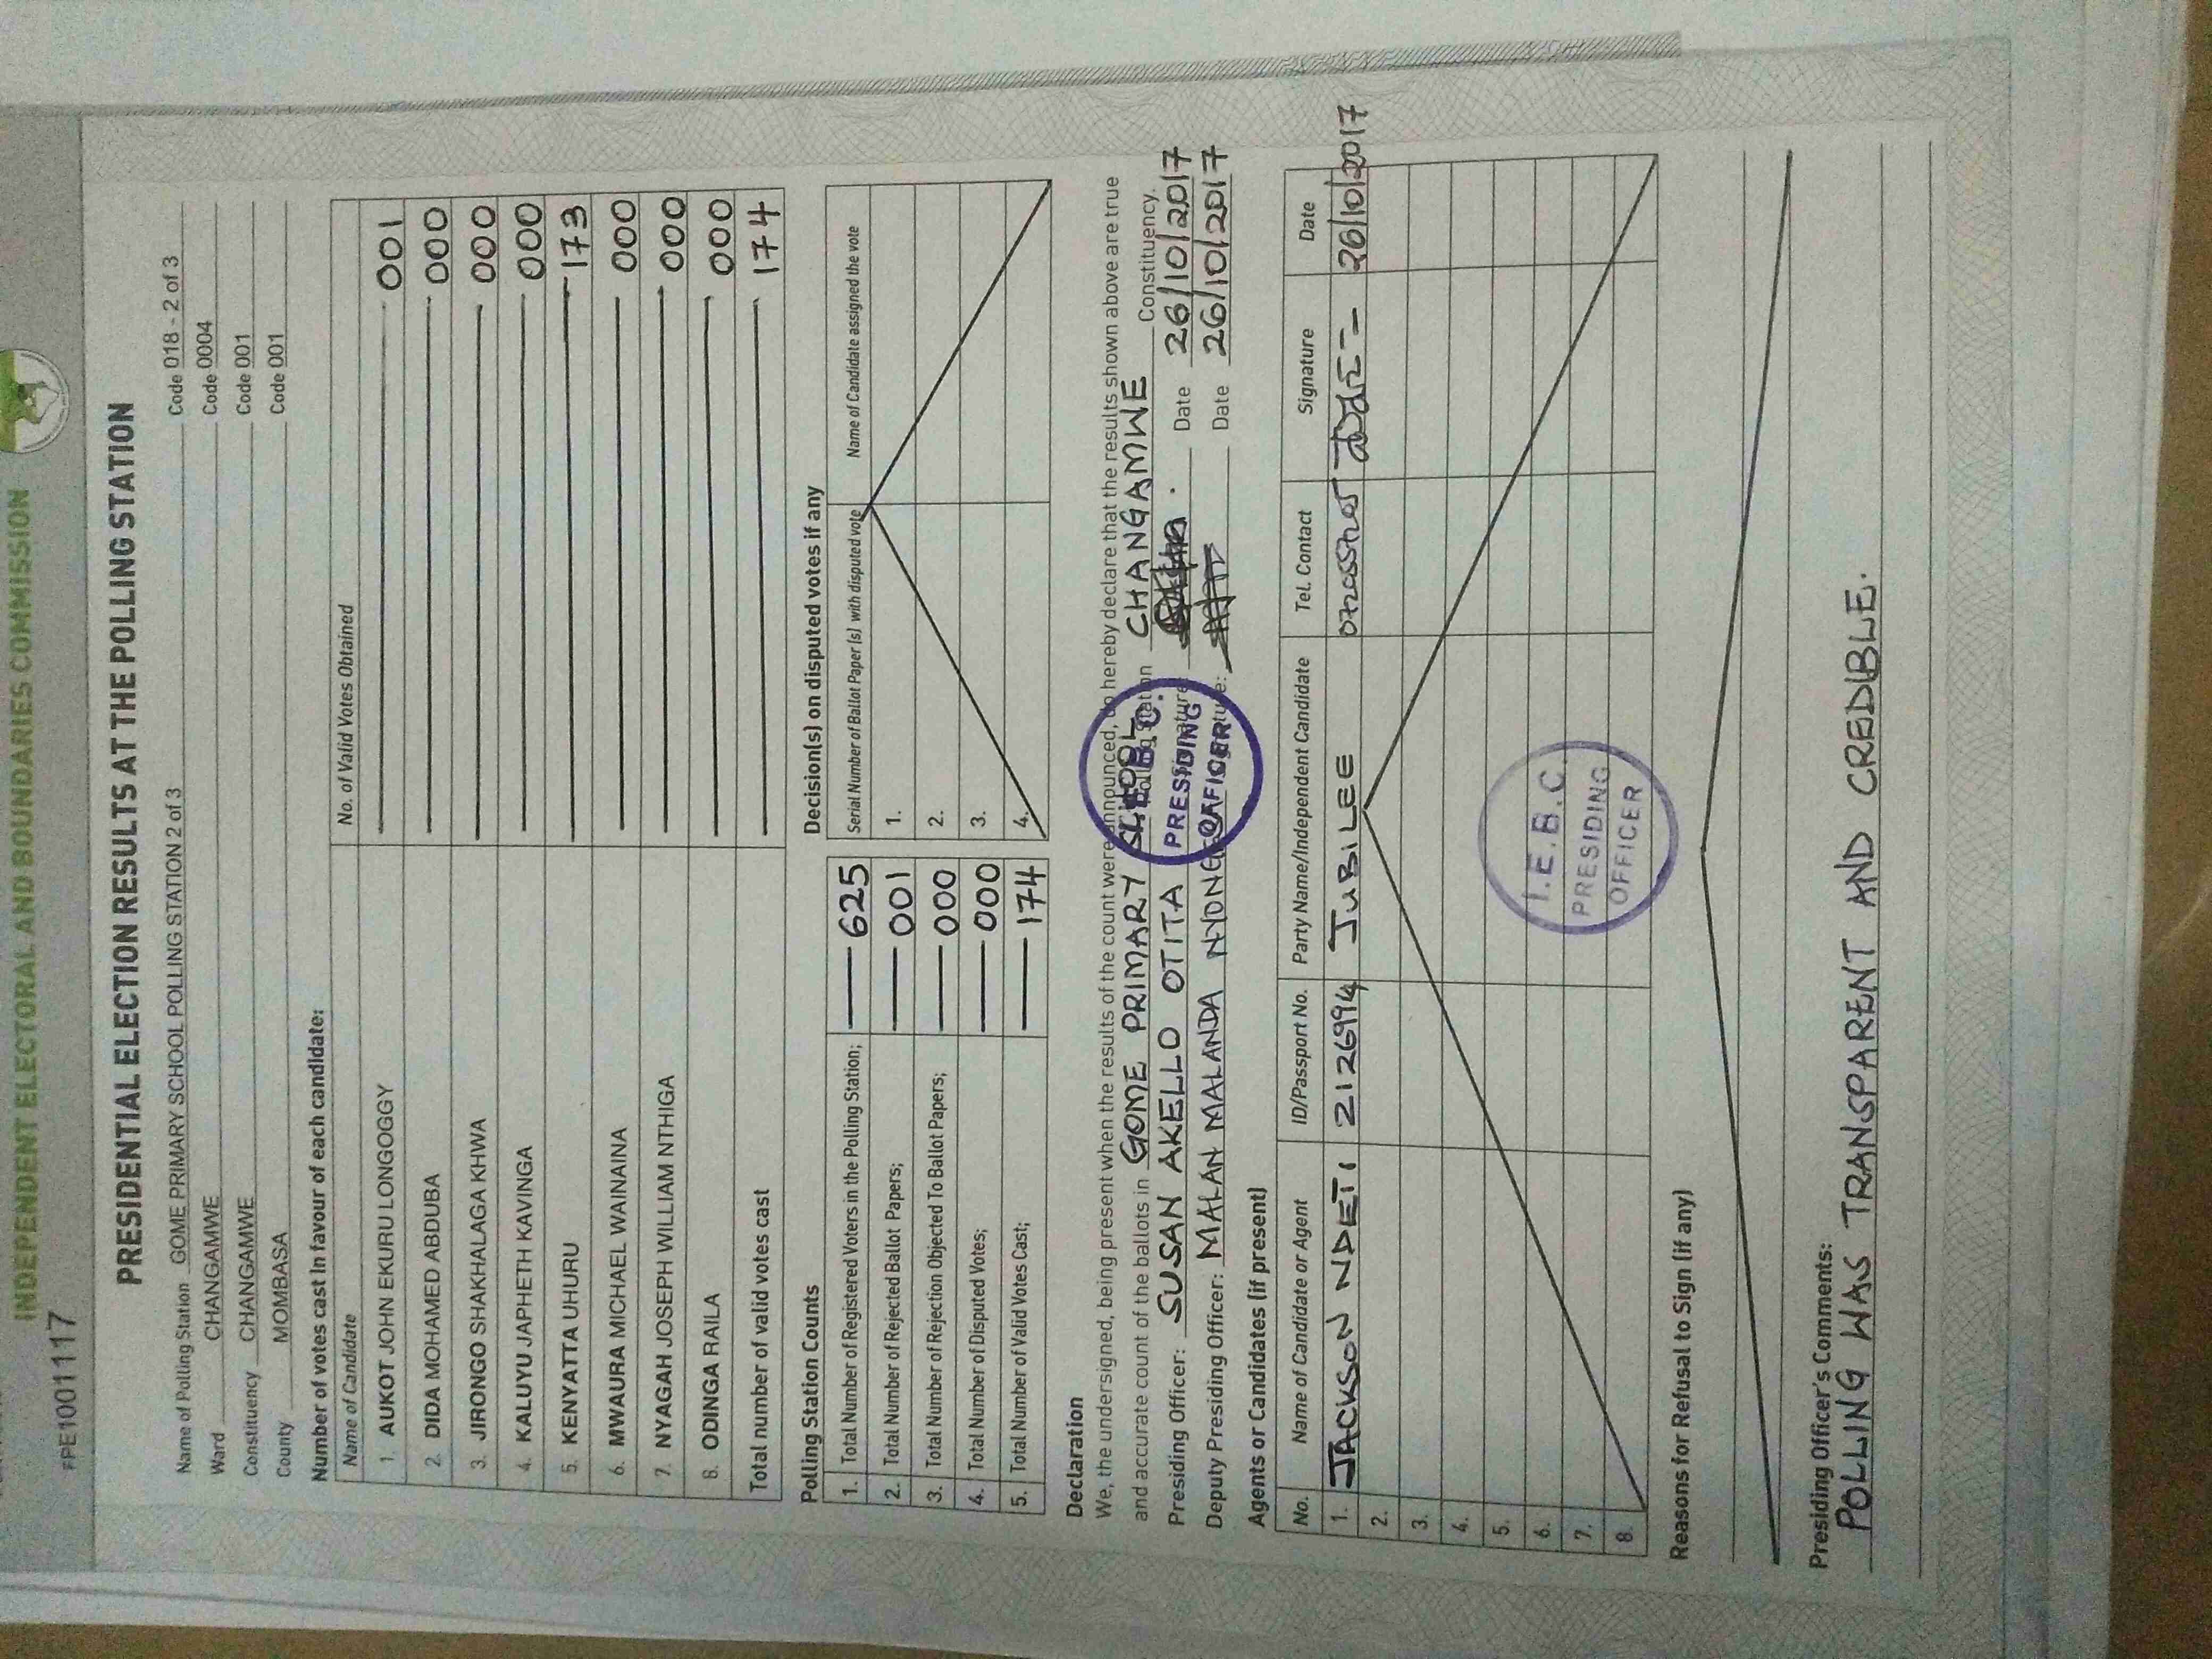 INDEPENDENT ELECTORAL AND BOUNDARIES COMMISSION
FPE1001117
PRESIDENTIAL ELECTION RESULTS AT THE POLLING STATION
Name of Polling Station GOME PRIMARY SCHOOL POLLING STATION 2 of 3 Code 018 - 2 of 3
Ward CHANGAMWE Code 0004
Constituency CHANGAMWE Code 001
County MOMBASA Code 001
Number of votes cast In favour of each candidate:
Name of Candidate No. of Valid Votes Obtained
1. AUKOT JOHN EKURU LONGOGGY 001
2. DIDA MOHAMED ABDUBA 000
3. JIRONGO SHAKHALAGA KHWA 000
4. KALUYU JAPHETH KAVINGA 000
5. KENYATTA UHURU 173
6. MWAURA MICHAEL WAINAINA 000
7. NYAGAH JOSEPH WILLIAM NTHIGA 000
8. ODINGA RAILA 000
Total number of valid votes cast 174
Polling Station Counts
1. Total Number of Registered Voters in the Polling Station; 625
2. Total Number of Rejected Ballot Papers; 001
3. Total Number of Rejection Objected To Ballot Papers; 000
4. Total Number of Disputed Votes; 000
5. Total Number of Valid Votes Cast; 174
Decision(s) on disputed votes if any
Serial Number of Ballot Paper (s) with disputed vote Name of Candidate assigned the vote
1.
2.
3.
4.
Declaration
We, the undersigned, being present when the results of the count were announced, do hereby declare that the results shown above are true
and accurate count of the ballots in GOME PRIMARY SCHOOL Polling Station CHANGAMWE Constituency.
Presiding Officer: SUSAN AKELLO OTITA Signature: Date 26/10/2017
Deputy Presiding Officer: MALAN MALANDA Signature: Date 26/10/2017
I.E.B.C.
PRESIDING
OFFICER
Agents or Candidates (if present)
No. Name of Candidate or Agent ID/Passport No. Party Name/Independent Candidate Tel. Contact Signature Date
1. JACKSON NDETI 21126994 JUBILEE 26/10/2017
2.
3.
4.
5.
6.
7.
8.
I.E.B.C.
PRESIDING
OFFICER
Reasons for Refusal to Sign (if any)
Presiding Officer's Comments:
POLLING WAS TRANSPARENT AND CREDIBLE.